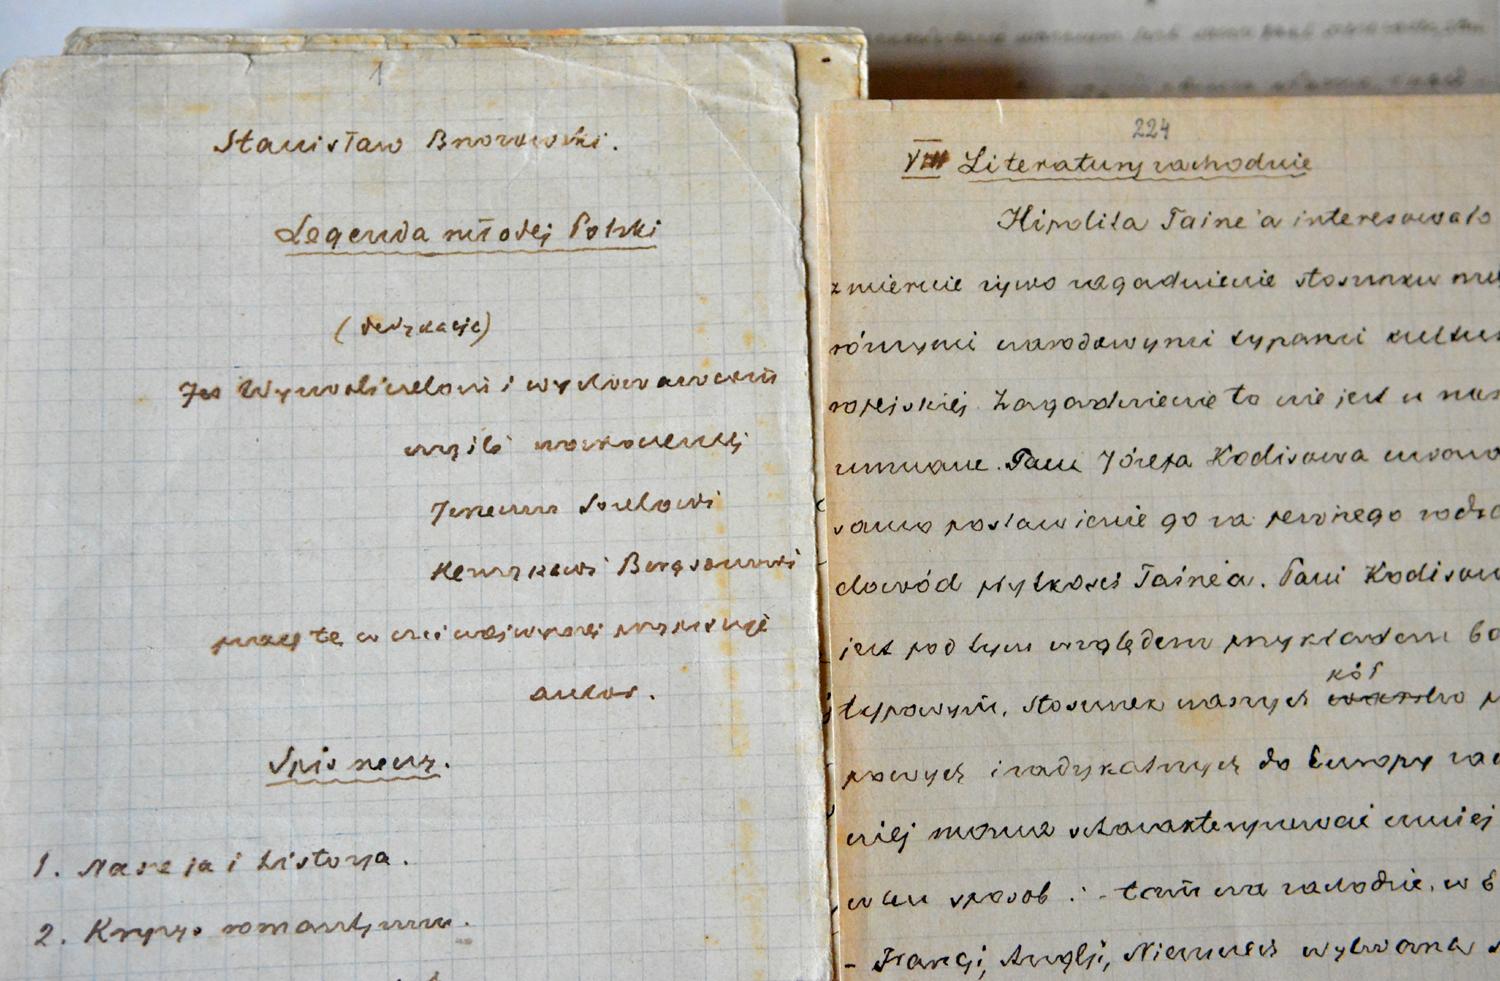 1
Stanisław Brzozowski.
Legenda młodej Polski
(dedykacja)
Wyzwolicielom i wychowawcom
myśli nowoczesnej
Jerzemu Sorelowi
Henrykowi Bergsonowi
pracę tę w czci najwyższej przypisuje
autor.
Spis rzeczy.
1. Nasze ja i historja.
2. Kryzys romantyzmu.
224
VIII Literatury zachodnie
Hipolita Taine'a interesowało
zmiernie żywo zagadnienie stosunku
różnymi narodowymi typami kultur
ropejskiej. Zagadnienie to nie jest u nas
umiane. Pani Józefa Kodisowa uważa
samo postawienie go za pewnego rodza
dowód płytkości Taine'a. Pani Kodisow
jest pod tym względem przykładem
kół
typowym. Stosunek naszych warstw
powych i radykalnych do Europy zac
niej można scharakteryzować mniej
w ten sposób: - tam na zachodzie, w
- Francji, Anglji, Niemczech wytwarza